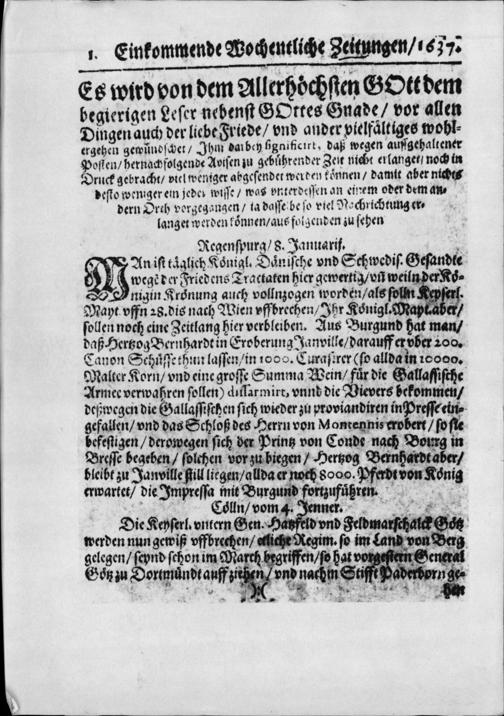 1. Einkommende Wochentliche Zeitungen/1637.
Es wird von dem Allerhöchsten GOtt dem
begierigen Leser nebenst GOttes Gnade / vor allen
Dingen auch der liebe Friede / vnd ander vielfältiges wohl-
ergehen gewündschet / Ihm darbey significirt, daß wegen auffgehaltener
Posten / hernachfolgende Avisen zu gebührender Zeit nicht erlanget / noch in
Druck gebracht / viel weniger abgesendet werden können / damit aber nichts
desto weniger ein jeder wisse / was vnterdessen an einem oder dem an-
dern Orth vorgegangen / so viel Nachrichtung er-
langet werden können / aus folgenden zu sehen
Regenspurg / 8. Januarij.
MAn ist täglich Königl. Dänische vnd Schwedis. Gesandte
wegē der Friedens Tractaten hier gewertig / vñ weiln der Kö-
nigin Krönung auch vollnzogen worden / als solln Keyserl.
Mayt. vffn 28. dis nach Wien vffbrechen / Ihr Königl. Mayt. aber /
sollen noch eine Zeitlang hier verbleiben. Aus Burgund hat man /
daß Hertzog Bernhardt in Eroberung Janville / darauff er vber 200.
Canon Schüsse thun lassen / in 1000. Curasirer (so allda in 10000.
Malter Korn / vnd eine grosse Summa Wein / für die Gallassische
Armee verwahren sollen) disarmirt, vnnd die Vievers bekommen /
deßwegen die Gallassischen sich wieder zu proviandiren in Presse ein-
gefallen / vnd das Schloß des Herrn von erobert / so sie
befestigen / derowegen sich der Printz von Conde nach Bourg in
Bresse begeben / solchen vor zu biegen / Hertzog Bernhardt aber /
bleibt zu Janville still liegen / allda er noch 8000. Pferdt von König
erwartet / die Impressa mit Burgund fortzuführen.
Cölln / vom 4. Jenner.
Die Keyserl. vntern Gen. Hatzfeld vnd Feldmarschalck Götz
werden nun gewiß vffbrechen / etliche Regim. so im Land von Berg
gelegen / seynd schon im March begriffen / so hat vorgestern General
Götz zu Dortmündt auff ziehen / vnd nachm Stifft Paderborn ge-
hen